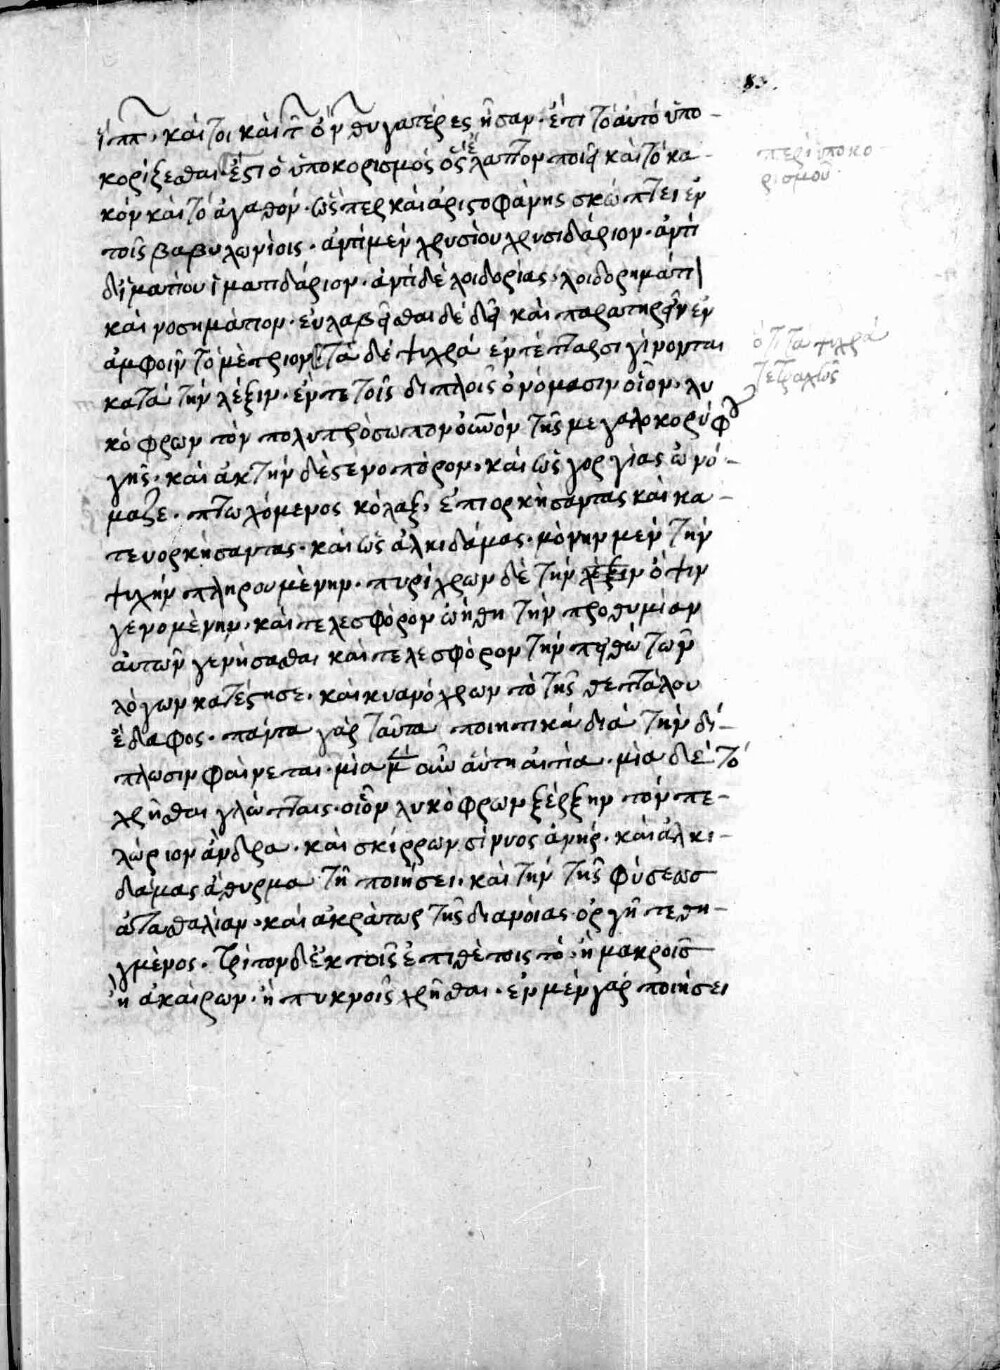 83
ἵππ. καίτοι καὶ τῶν ὄνων θυγατέρες ἦσαν. ἔτι τὸ αὐτὸ ὑπο-
κορίζεσθαι. ἔστι ὁ ὑποκορισμὸς ὃς ἔλαττον ποιεῖ καὶ τὸ κα-
κὸν καὶ τὸ ἀγαθόν. ὥσπερ καὶ ἀριστοφάνης σκώπτει ἐν
τοῖς βαβυλωνίοις. ἀντὶ μὲν χρυσίου χρυσιδάριον. ἀντὶ
δ' ἱματίου ἱματιδάριον. ἀντὶ δὲ λοιδορίας, λοιδορημάτι
καὶ νοσημάτιον. εὐλαβεῖσθαι δὲ δεῖ καὶ παρατηρεῖν ἐν
ἀμφοῖν τὸ μέτριον. τὰ δὲ ψυχρὰ ἐν τέτταρσι γίνονται
κατὰ τὴν λέξιν. ἔν τε τοῖς διπλοῖς ὀνόμασιν οἷον, λυ
κόφρων τὸν πολυπρόσωπον οὐρανὸν τῆς μεγαλοκορύφου
γῆς. καὶ ἀκτὴν δὲ στενοπόρον, καὶ ὡς γοργίας ὠνό-
μαζε. πτωχόμενος κόλαξ, ἐπιορκήσαντας καὶ κα-
τευορκήσαντας. καὶ ὡς ἀλκιδάμας. μόνην μὲν τὴν
ψυχὴν πληρουμένην. πυρίχρων δὲ τὴν λέξιν ὄψιν
γενομένην. καὶ τελεσφόρον ὠήθη τὴν προθυμίαν
αὐτῶν γενήσασθαι καὶ τελεσφόρον τὴν πειθὼ τῶν
λόγων κατέστησε. καὶ κυανόχρων τὸ τῆς θεττάλου
ἔδαφος. πάντα γὰρ ταῦτα ποιητικὰ διὰ τὴν δί-
πλωσιν φαίνεται. μία μ οὖν αὕτη αἰτία. μία δὲ τὸ
χρῆσθαι γλώτταις. οἷον λυκόφρων ξέρξην τὸν πε-
λώριον ἄνδρα. καὶ σκίρρων σίννος ἀνήρ. καὶ ἀλκι-
δάμας ἄθυρμα τῇ ποιήσει. καὶ τὴν τῆς φύσεως
ἀτασθαλίαν, καὶ ἀκράτως τῆς διανοίας ὀργῇ τεθη-
γμένος. τρίτον δ' ἐκ τοῖς ἐπιθέτοις τὸ, ἢ μακροῖς
ἢ ἀκαίρων. ἢ πυκνοῖς χρῆσθαι. ἐν μὲν γὰρ ποιήσει
περὶ ὑποκο-
ρισμοῦ.
ὅτι τὰ ψυχρὰ
τετραχῶς